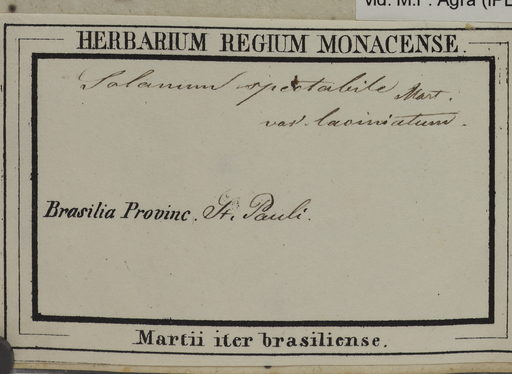 HERBARIUM REGIUM MONACENSE.
Solanum spectabile Mart.
var. laciniatum.
Brasilia Provinc. St. Pauli.
Martii iter brasiliense.